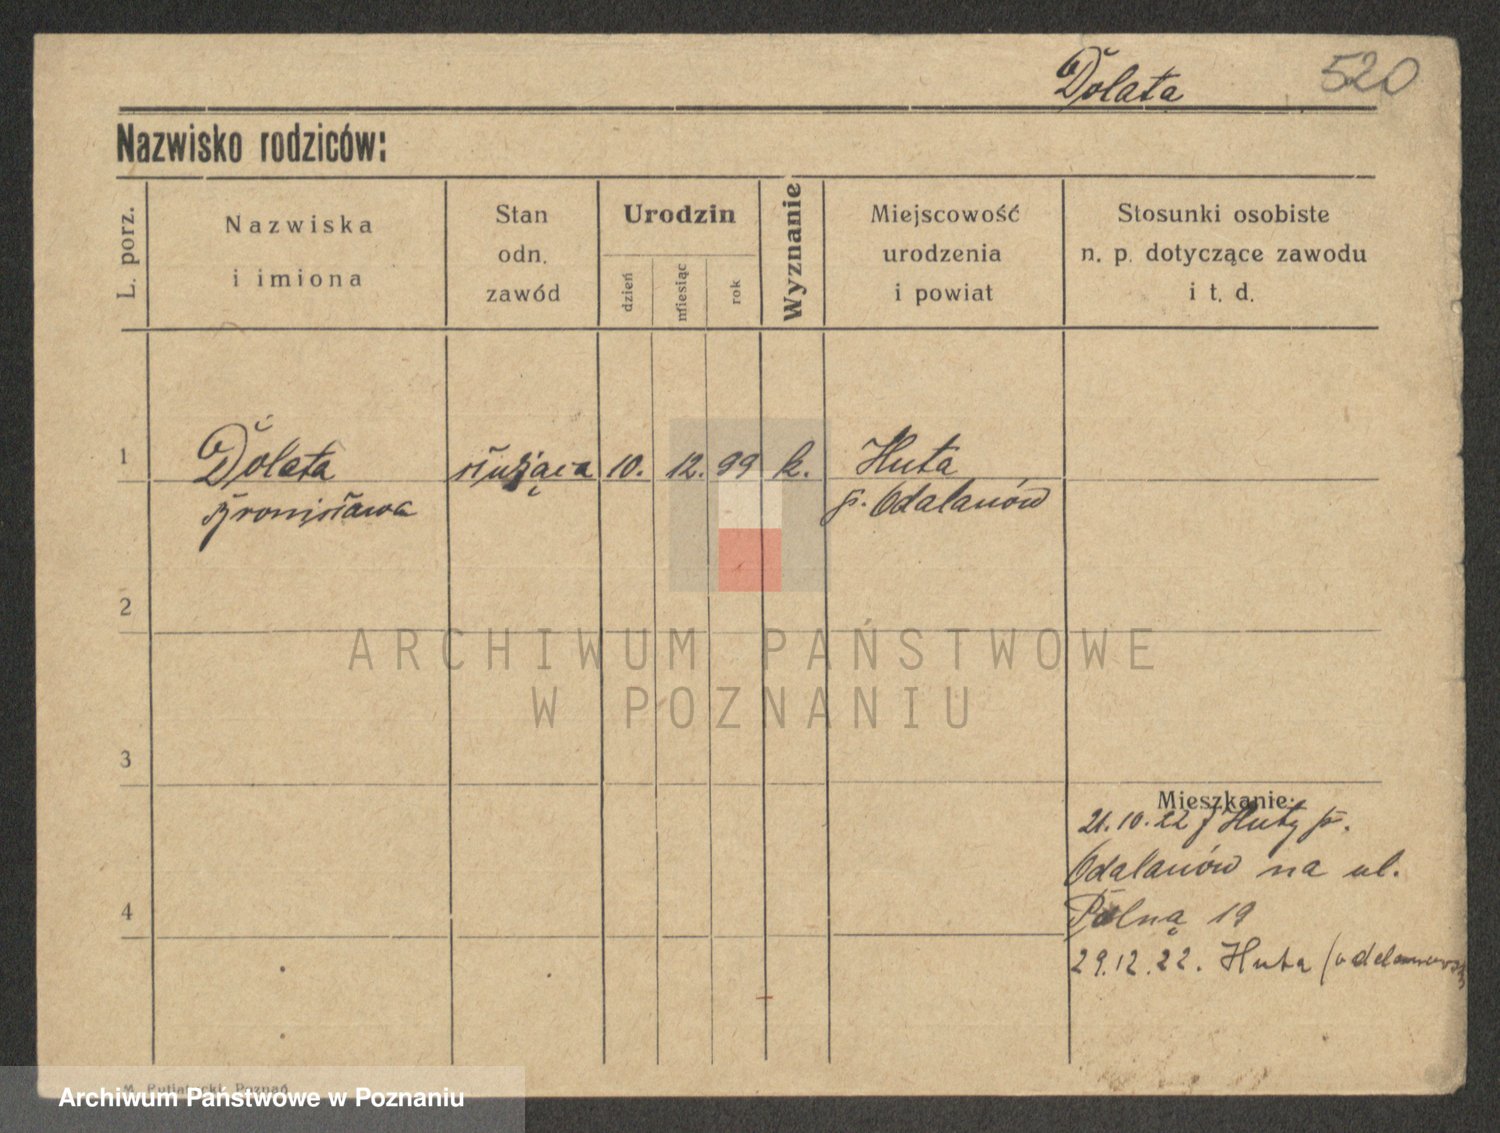 Dolata
520
Nazwisko rodziców:
L. porz.
Nazwiska
i imiona
Stan
odn.
zawód
Urodzin
dzień
miesiąc
rok
Wyznanie
Miejscowość
urodzenia
i powiat
Stosunki osobiste
n. p. dotyczące zawodu
i t. d.
1
Dolata
Bronisława
służąca
10.
12.
99
k.
Huta
p. Odalanów
2
ARCHIWUM PAŃSTWOWE
W POZNANIU
3
Mieszkanie:
21.10.22 z Huty p.
Odalanów na ul.
Polną 19
29.12.22. Huta
4
M. Putiatycki, Poznań
Archiwum Państwowe w Poznaniu